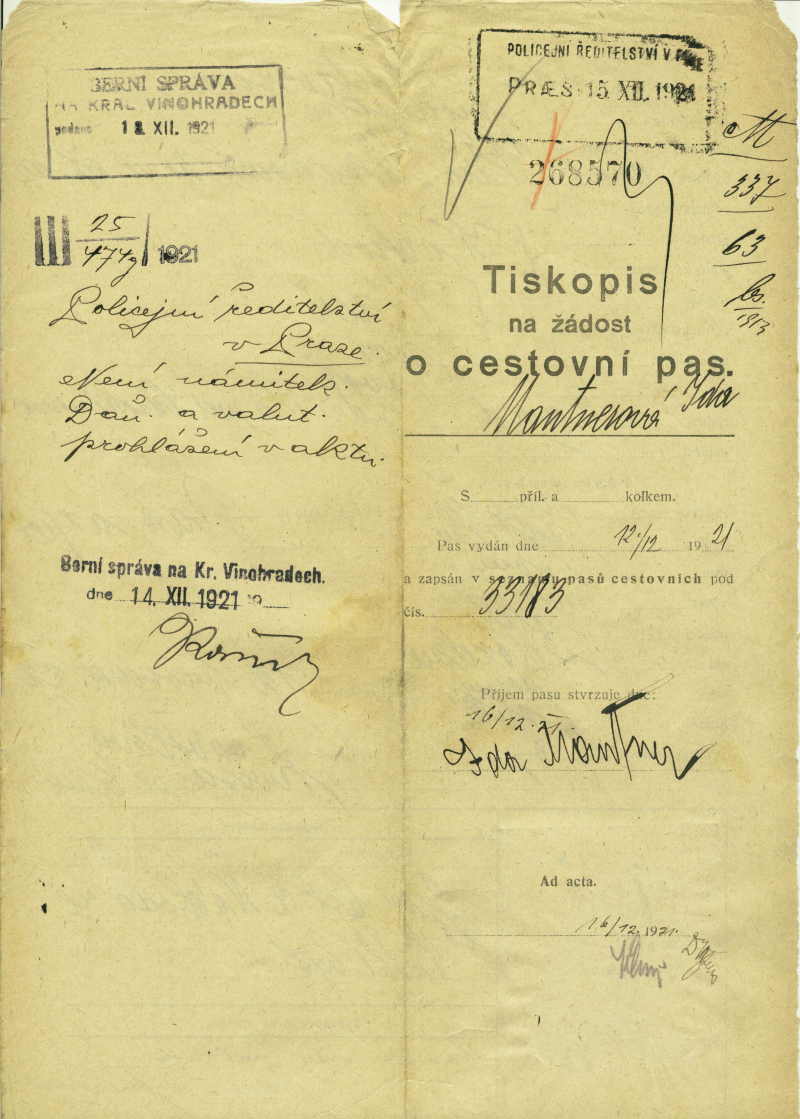 BERNÍ SPRÁVA
NA KRÁL VINOHRADECH
podáno 12 XII. 1921
III 25/474g 1921
Policejní ředitelství
v Praze.
Není námitek.
Daň. a valut.
prohlášení v aktu.
Berní správa na Kr. Vinohradech.
dne 14. XII. 1921 19
POLICEJNÍ ŘEDITELSTVÍ V PRAZE
PRÆS. 15 XII. 1921
268570
M
337
63
1913
Tiskopis
na žádost
o cestovní pas.
Mantnerová Ida
S příl. a kolkem.
Pas vydán dne 12./12 19 21
a zapsán v seznamu pasů cestovních pod
čís. 33183
Příjem pasu stvrzuje dne:
16/12.21.
Ida Mantner
Ad acta.
16/12. 1921.